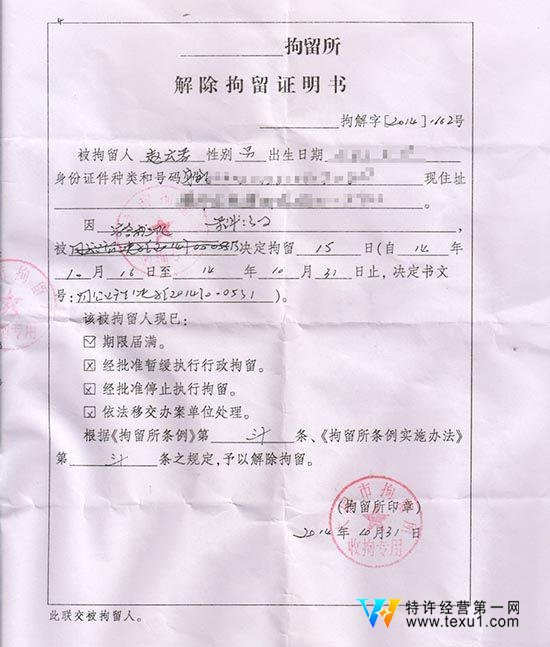 拘留所
解除拘留证明书
拘解字[2014]162号
被拘留人 赵 性别 男 出生日期
身份证件种类和号码 现住址
因
被 决定拘留 15 日(自 14 年
10 月 16 日至 14 年 10 月 31 日止，决定书文
号: [2014] 0531 )。
该被拘留人现已:
☑ 期限届满。
☒ 经批准暂缓执行行政拘留。
☒ 经批准停止执行拘留。
☒ 依法移交办案单位处理。
根据《拘留所条例》第 条、《拘留所条例实施办法》
第 条之规定，予以解除拘留。
市拘留所
(拘留所印章)
2014 年 10 月 31 日
收拘专用
此联交被拘留人。
特许经营第一网
www.texu1.com